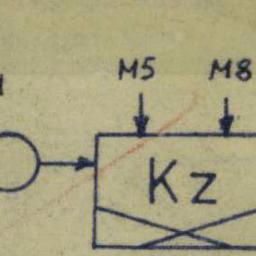 M5 M8
Kz